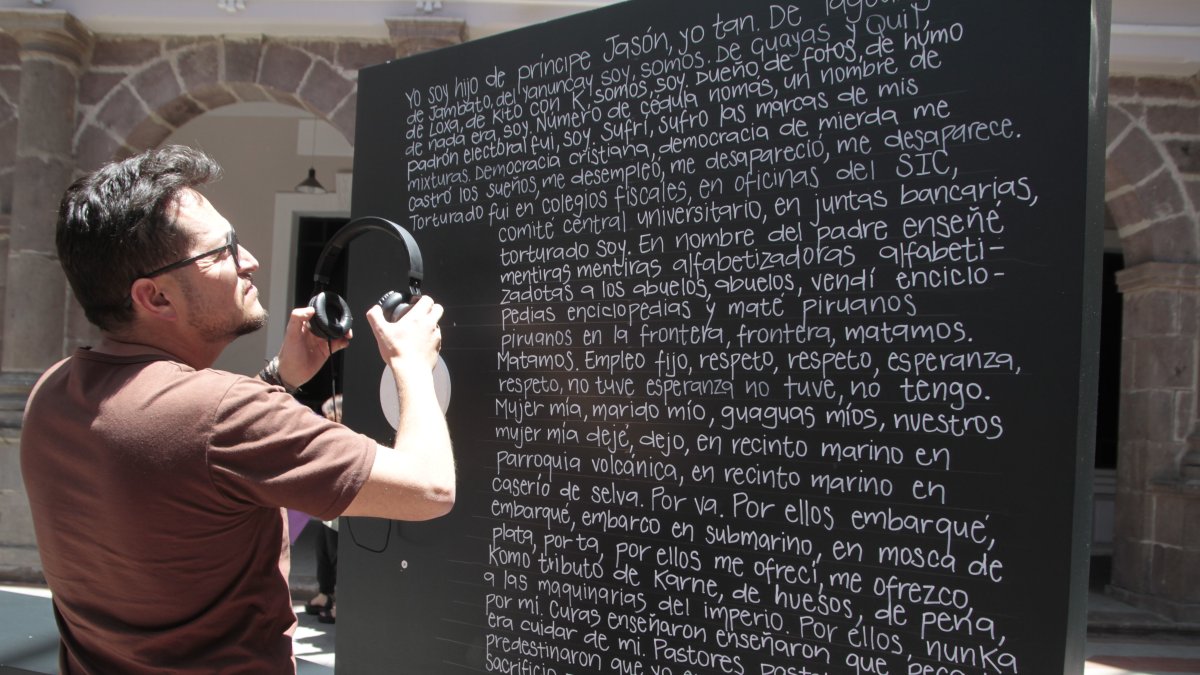 Yo soy hijo de príncipe Jasón, yo tan. De
de Jambato, del yanuncay soy, somos. De Guayas y Quil,
de Loxa, de Kito con K, somos, soy. Dueño de fotos, de humo
de nada era, soy. Número de cédula nomás, un nombre de
padrón electoral fui, soy. Sufrí, sufro las marcas de mis
mixturas. Democracia cristiana, democracia de mierda me
castró los sueños, me desempleó, me desapareció, me desaparece.
Torturado fui en colegios fiscales, en oficinas del SIC,
comité central universitario, en juntas bancarias,
torturado soy. En nombre del padre enseñé
mentiras mentiras alfabetizadoras alfabeti-
zadotas a los abuelos, abuelos, vendí enciclo-
pedias enciclopedias y maté piruanos
piruanos en la frontera, frontera, matamos.
Matamos. Empleo fijo, respeto, respeto, esperanza,
respeto, no tuve esperanza no tuve, no tengo.
Mujer mía, marido mío, guaguas míos, nuestros
mujer mía dejé, dejo, en recinto marino en
parroquia volcánica, en recinto marino en
caserío de selva. Por va. Por ellos embarqué,
embarqué, embarco en submarino, en mosca de
plata, por ta, por ellos me ofrecí, me ofrezco,
Komo tributo de Karne, de huesos, de pena,
a las maquinarias del imperio. Por ellos, nunka
por mi. Curas enseñaron enseñaron que
era cuidar de mi. Pastores
predestinaron que yo
Sacrificio